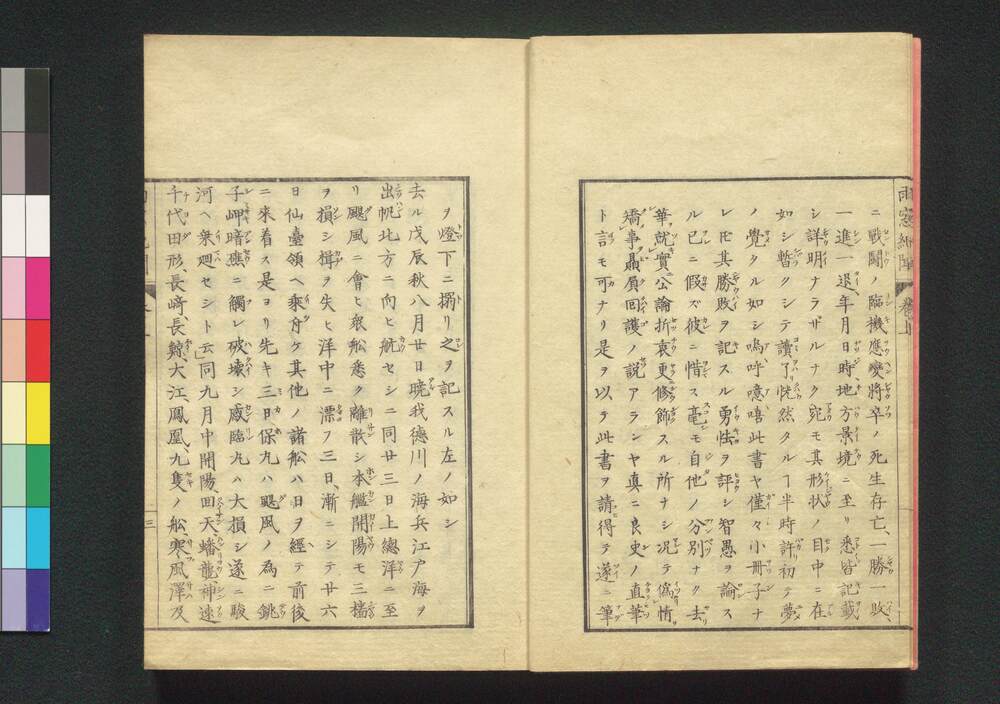 雨窓紀聞 巻上
ニ戰鬪ノ臨機應變將卒ノ死生存亡、一勝一敗、
一進一退、年月日時地方景境ニ至リ悉皆記載
シ詳明ナラザルナク宛モ其形状ノ目中ニ在
如シ暫クシテ讀了恍然タルヿ半時許初テ夢
ノ覺タル如シ嗚呼噫嘻此書ヤ僅々小冊子ナ
レ𪜈其勝敗ヲ記スル勇怯ヲ評シ智愚ヲ論ス
ル已ニ假ズ彼ニ惜ス毫モ自他ノ分別ナク去
華就實、公論折衷更修飾スル所ナシ况テ偽情
矯事贔屓回護ノ説アランヤ真ニ良史ノ直筆
ト言モ可ナリ是ヲ以テ此書ヲ請得テ遂ニ筆
ヲ燈下ニ搦リ之ヲ記スル左ノ如シ
去ル戊辰秋八月廿日曉我德川ノ海兵江戸海ヲ
出帆北方ニ向ヒ航セシニ同廿三日上總洋ニ至
リ颶風ニ會ヒ衆船悉ク離散シ本艦開陽モ三檣
ヲ損シ楫ヲ失ヒ洋中ニ漂フ三日、漸ニシテ廿六
日仙臺領ヘ乘付ケ其他ノ諸船ハ日ヲ經テ前後
ニ來着ス是ヨリ先キ三日保丸ハ颶風ノ為ニ銚
子岬暗礁ニ觸レ破壊シ咸臨丸ハ大損シ遂ニ駿
河ヘ乘廻セシト云」同九月中開陽、回天、蟠龍、神速
千代田形、長﨑、長鯨、大江、鳳凰、九隻ノ船、寒風澤及
三